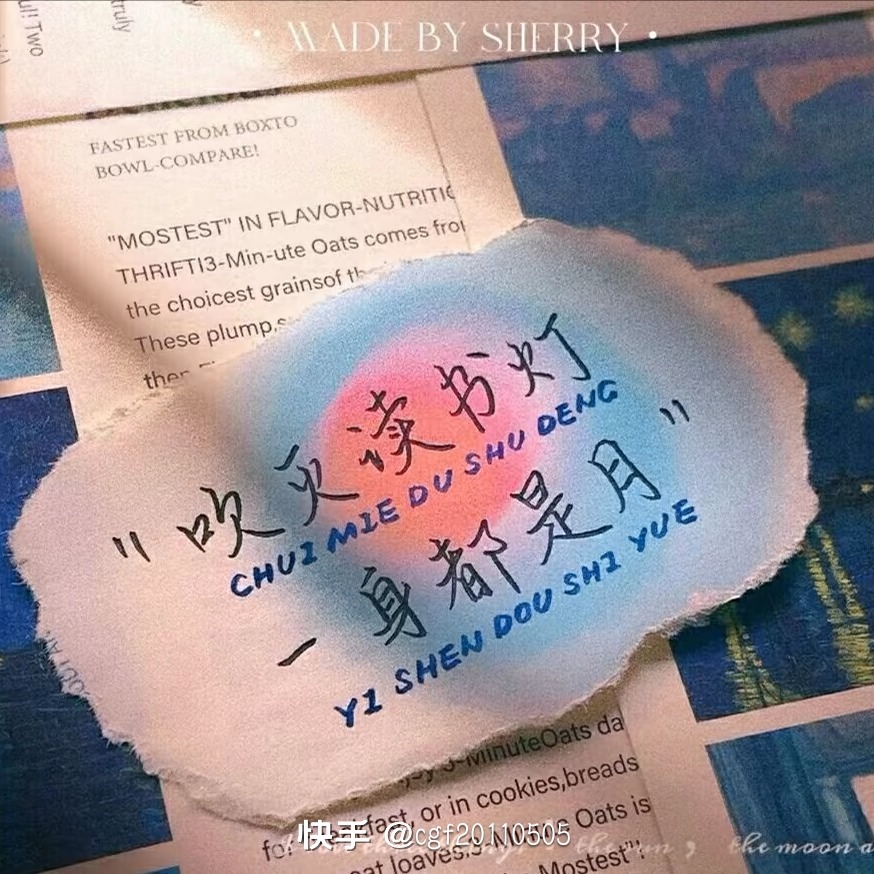 • MADE BY SHERRY •
ul! Two
truly
FASTEST FROM BOXTO
BOWL-COMPARE!
"MOSTEST" IN FLAVOR-NUTRITIO
THRIFTI3-Min-ute Oats comes from
the choicest grainsof th
These plump,s
then
"吹灭读书灯
CHUI MIE DU SHU DENG
一身都是月"
YI SHEN DOU SHI YUE
3-MinuteOats da
for breakfast, or in cookies,breads
eat loaves. Oats is
Mostest".
快手 @cgf20110505
the sun , the moon a